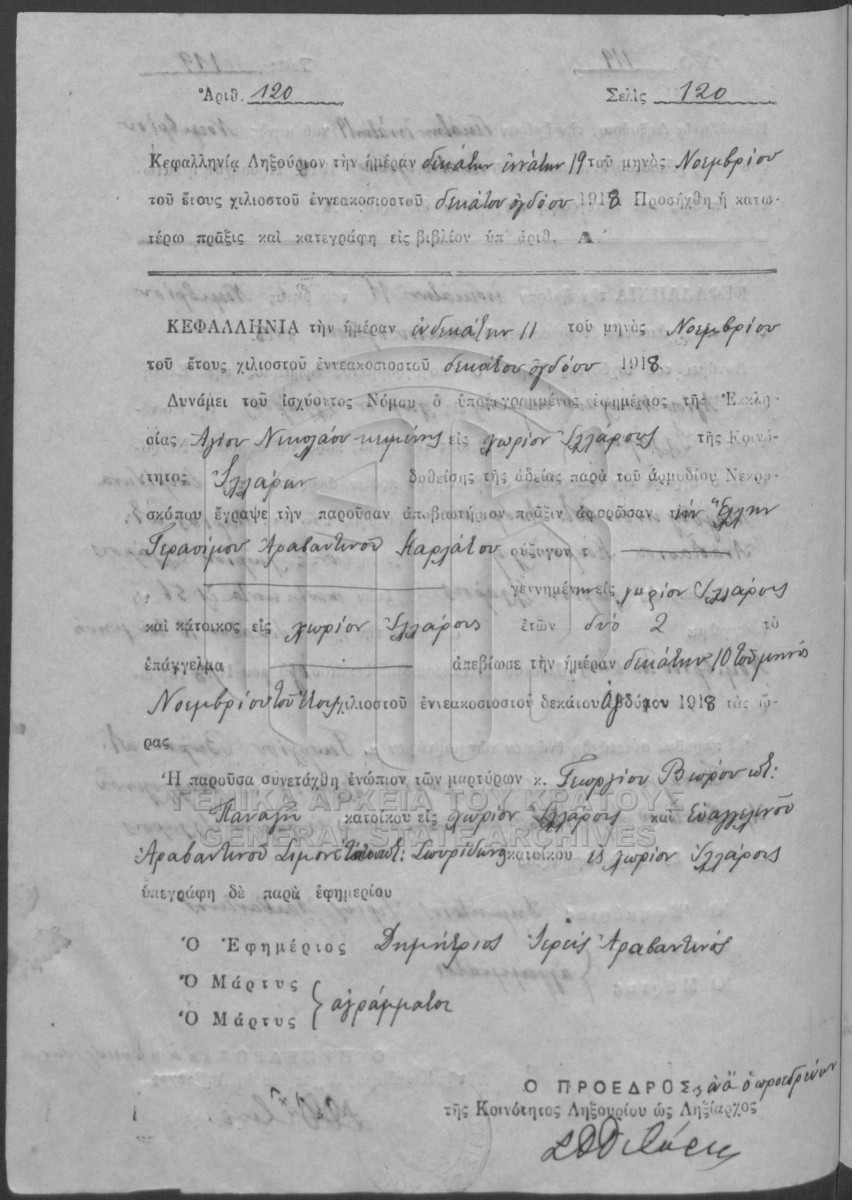 Ἀριθ. 120 Σελὶς 120
Κεφαλληνία Ληξούριον τὴν ἡμέραν δεκάτην ἐννάτην 19 τοῦ μηνὸς Νοεμβρίου
τοῦ ἔτους χιλιοστοῦ ἐννεακοσιοστοῦ δεκάτου ὀγδόου 1918 Προσήχθη ἡ κατω-
τέρω πρᾶξις καὶ κατεγράφη εἰς βιβλίον ὑπ' ἀριθ. Α.
ΚΕΦΑΛΛΗΝΙΑ τὴν ἡμέραν ἑνδεκάτην 11 τοῦ μηνὸς Νοεμβρίου
τοῦ ἔτους χιλιοστοῦ ἐννεακοσιοστοῦ δεκάτου ὀγδόου 1918
Δυνάμει τοῦ ἰσχύοντος Νόμου ὁ ὑπογεγραμμένος ἐφημέριος τῆς Ἐκκλη-
σίας Ἁγίου Νικολάου κειμένης εἰς χωρίον Ἰλλάρους τῆς Κοινό-
τητος Ἰλλάρων δοθείσης τῆς ἀδείας παρὰ τοῦ ἁρμοδίου Νεκρο-
σκόπου ἔγραψε τὴν παροῦσαν ἀποβιωτήριον πρᾶξιν ἀφορῶσαν τὴν Ἕλλην
Γερασίμου Ἀραβαντινοῦ Καρλάτου σύζυγον τ
γεννημένην εἰς χωρίον Ἰλλάρους
καὶ κάτοικος εἰς χωρίον Ἰλλάρους ἐτῶν δύο 2 τὸ
ἐπάγγελμα ἀπεβίωσε τὴν ἡμέραν δεκάτην 10 τοῦ μηνὸς
Νοεμβρίου τοῦ ἔτους χιλιοστοῦ ἐννεακοσιοστοῦ δεκάτου 1918 τὰς ὥ-
ρας
Ἡ παροῦσα συνετάχθη ἐνώπιον τῶν μαρτύρων κ. Γεωργίου
Παναγῆ κατοίκου εἰς χωρίον Ἰλλάρους καὶ Εὐαγγελινοῦ
Ἀραβαντινοῦ Σπυρίδωνος κατοίκου εἰς χωρίον Ἰλλάρους
ὑπεγράφη δὲ παρὰ ἐφημερίου
Ὁ Ἐφημέριος Δημήτριος Ἱερεὺς Ἀραβαντινὸς
Ὁ Μάρτυς
ἀγράμματοι
Ὁ Μάρτυς
Ο ΠΡΟΕΔΡΟΣ ὁ προεδρεύων
τῆς Κοινότητος Ληξουρίου ὡς Ληξίαρχος
ΓΕΝΙΚΑ ΑΡΧΕΙΑ ΤΟΥ ΚΡΑΤΟΥΣ
GENERAL STATE ARCHIVES